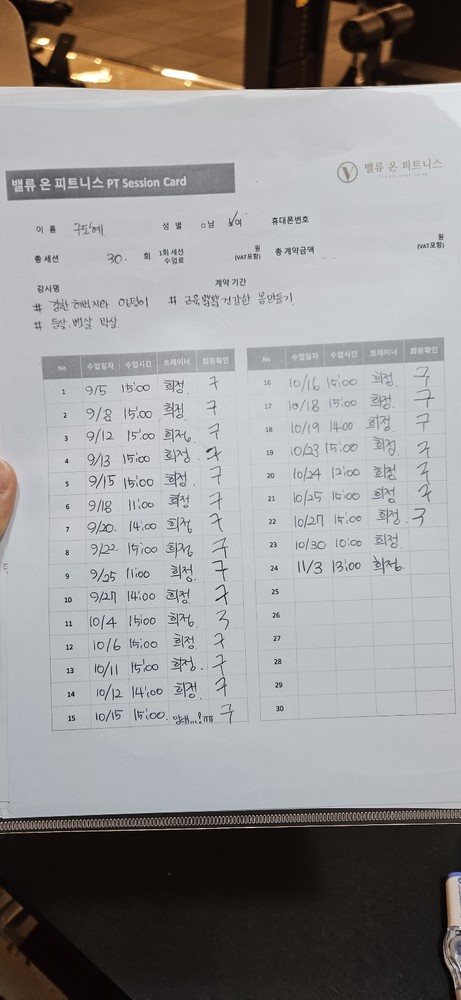 밸류 온 피트니스 PT Session Card
밸류 온 피트니스
이 름 성 별 □남 ☑여 휴대폰번호
총 세션 30. 회 1회 세션 수업료 원 (VAT포함) 총 계약금액 원 (VAT포함)
강사명 계약 기간
# #
# 등살. 뱃살 박살.
No 수업일자 수업시간 트레이너 회원확인
1 9/5 15:00 희정 구
2 9/8 15:00 희정 구
3 9/12 15:00 희정 구
4 9/13 15:00 희정 구
5 9/15 15:00 희정 구
6 9/18 11:00 희정 구
7 9/20. 14:00 희정 구
8 9/22 15:00 희정 구
9 9/25 11:00 희정 구
10 9/27 14:00 희정 구
11 10/4 15:00 희정 구
12 10/6 15:00 희정 구
13 10/11 15:00 희정. 구
14 10/12 14:00 희정. 구
15 10/15 15:00. 구
No 수업일자 수업시간 트레이너 회원확인
16 10/16 15:00 희정. 구
17 10/18 15:00 희정. 구
18 10/19 14:00 희정. 구
19 10/23 15:00 희정. 구
20 10/24 12:00 희정 구
21 10/25 15:00 희정 구
22 10/27 15:00 희정. 구
23 10/30 10:00 희정
24 11/3 13:00 희정
25
26
27
28
29
30